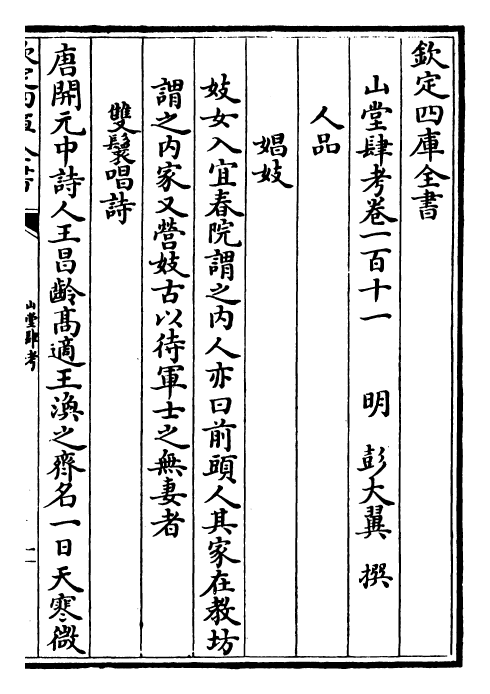 欽定四庫全書
山堂肆考卷一百十一　明　彭大翼　撰
人品
娼妓
妓女入宜春院謂之內人亦曰前頭人其家在教坊
謂之內家又營妓古以待軍士之無妻者
雙鬟唱詩
唐開元中詩人王昌齡高適王渙之齊名一日天寒微
欽定四庫全書
山堂肆考
一